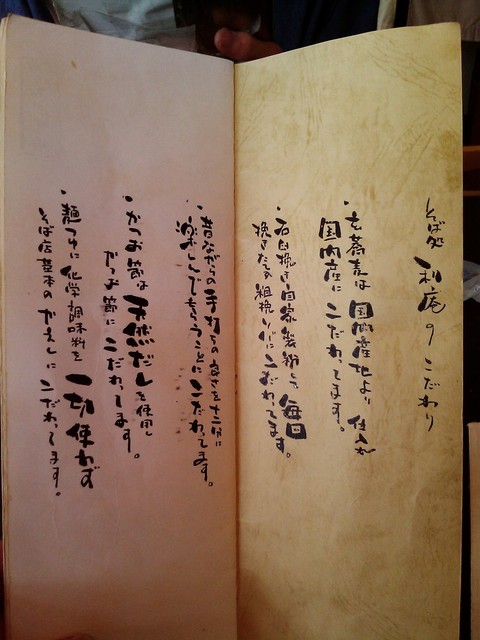 そば処 利庵のこだわり
・玄蕎麦は国内産地より仕入れ
国内産にこだわってます。
・石臼挽き自家製粉して毎日
挽きたる粗挽きにこだわってます。
・昔ながらの手打ちの良さを十二分に
楽しんでもらうことにこだわってます。
・かつお節は天然だしを使用し
かつお節にこだわってます。
・麺つゆに化学調味料を一切使わず
そば店基本のかえしにこだわってます。